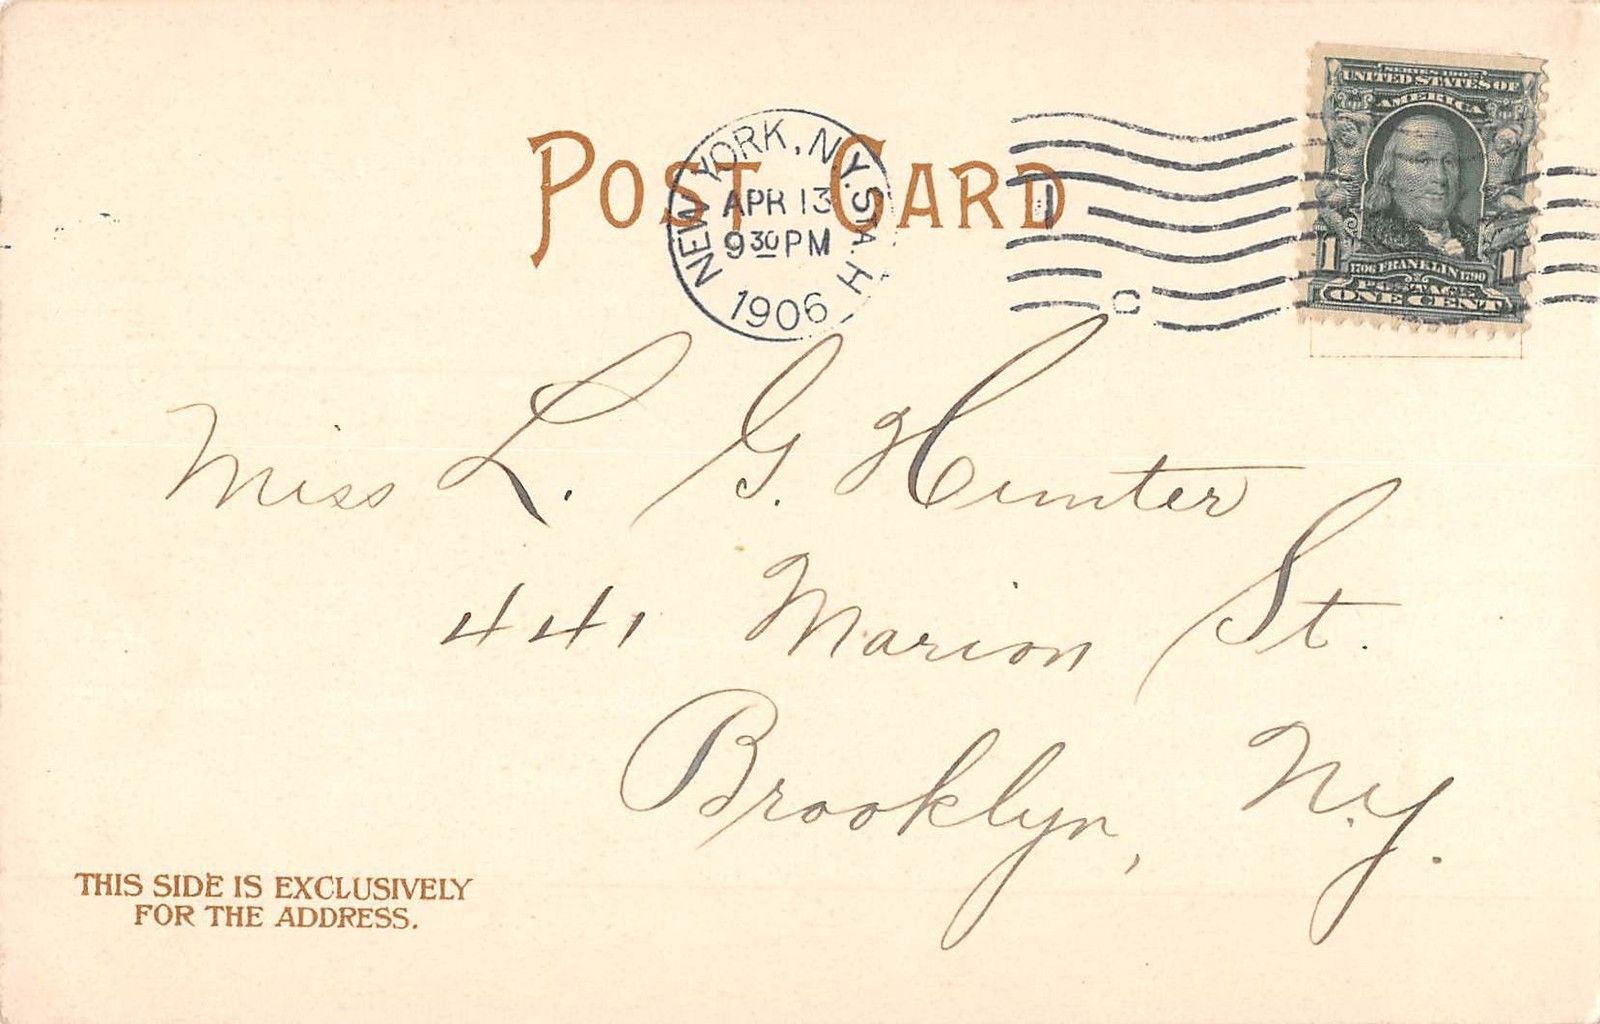 POST CARD
NEW YORK, N.Y. STA. H
APR 13
9 30 PM
1906
C
SERIES 1902
UNITED STATES OF
AMERICA
1 1
1706 FRANKLIN 1790
POSTAGE
ONE CENT
Miss L. G. Hunter
441 Marion St.
Brooklyn, N.Y.
THIS SIDE IS EXCLUSIVELY
FOR THE ADDRESS.